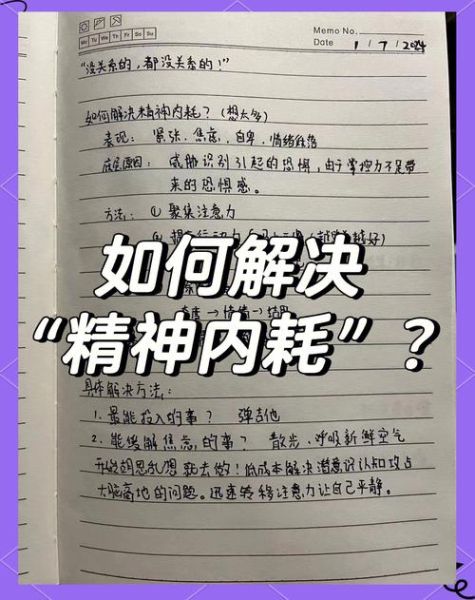 Mo Tu We Th Fr Sa Su
Memo No.
Date 1 / 7 / 2024
“没关系的,都没关系的!”
如何解决精神内耗?(想太多)
表现: 紧张、焦虑、自卑、情绪低落
底层原因: 威胁识别引起的恐惧,由于掌控力不足带
来的恐惧感。
方法: ① 聚集注意力
如何解决
→ 情绪 → 结果
“精神内耗”?
具体解决方法:
1. 最能投入的事? 弹吉他
2. 能缓解焦虑的事? 散步、呼吸新鲜空气
开始胡思乱想就去做!低成本解决潜意识认知攻占
大脑高地的问题。迅速转移注意力让自己平静。